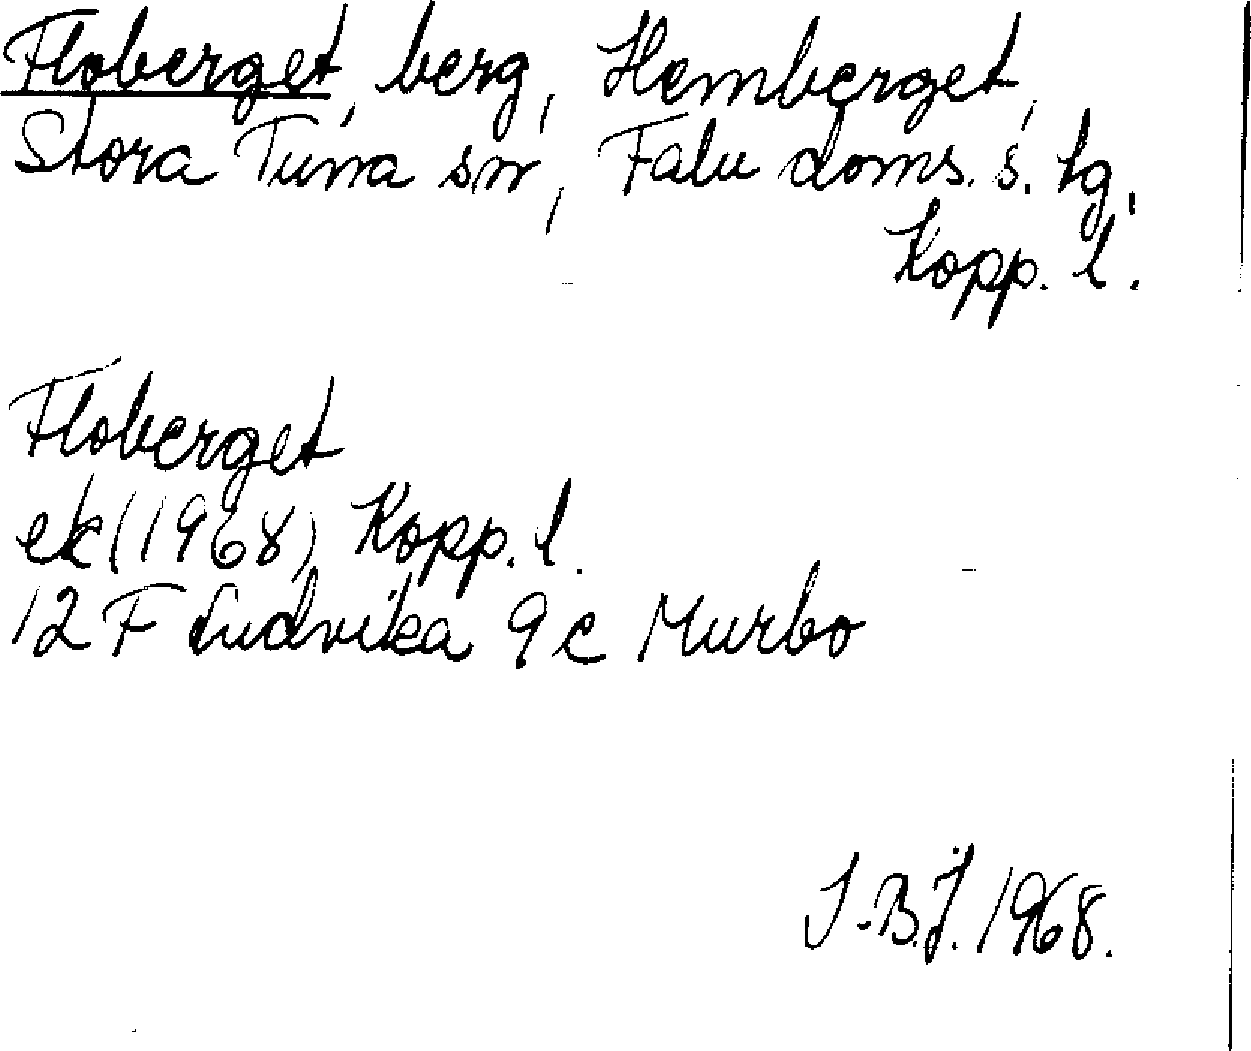 Floberget, berg, Hemberget,
Stora Tuna sn, Falu doms. s. tg.
Kopp. l.
Floberget
ek (1968) Kopp. l.
12 F Ludvika 9 c Murbo
I.B.J. 1968.